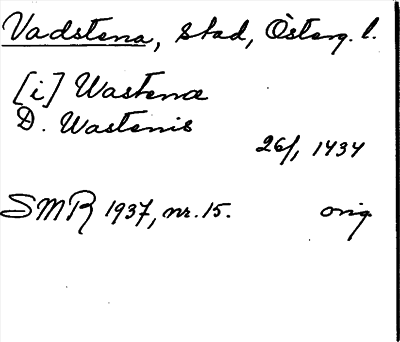 Vadstena, stad, Österg. l.
[i] Wastenæ
D. Wastenis
26/1 1434
SMR 1937, nr. 15. orig